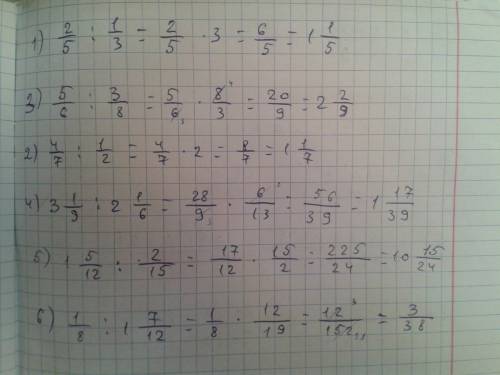 1) 2/5 : 1/3 = 2/5 · 3 = 6/5 = 1 1/5
3) 5/6 : 3/8 = 5/6₃ · 8⁴/3 = 20/9 = 2 2/9
2) 4/7 : 1/2 = 4/7 · 2 = 8/7 = 1 1/7
4) 3 1/9 : 2 1/6 = 28/9₃ · 6²/13 = 56/39 = 1 17/39
5) 1 5/12 : 2/15 = 17/12 · 15/2 = 225/24 = 10 15/24
6) 1/8 : 1 7/12 = 1/8 · 12/19 = 12³/152 = 3/38